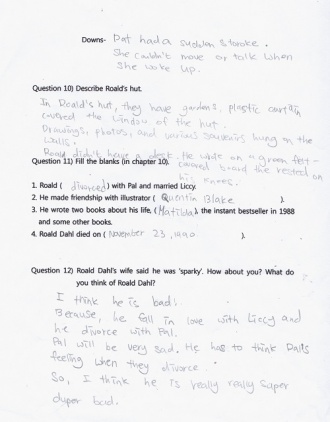 Downs- Pat had a sudden stroke.
She couldn't move or talk when
She woke up.
Question 10) Describe Roald's hut.
In Roald's hut, they have gardens, plastic curtain
covered the window of the hut.
Drawings, photos, and various souvenirs hung on the
walls.
Roald didn't have a desk. He wrote on "green felt-
covered board the rested on
his knees.
Question 11) Fill the blanks (in chapter 10).
1. Roald ( divorced ) with Pal and married Liccy.
2. He made friendship with illustrator ( Quentin Blake ).
3. He wrote two books about his life, (Matilda), the instant bestseller in 1988
and some other books.
4. Roald Dahl died on ( November 23, 1990 ).
Question 12) Roald Dahl's wife said he was 'sparky'. How about you? What do
you think of Roald Dahl?
I think he is bad.
Because, he fill in love with Liccy and
he divorce with Pal.
Pal will be very sad. He has to think Pal's
feeling when they divorce.
So, I think he is really really super
duper bad.